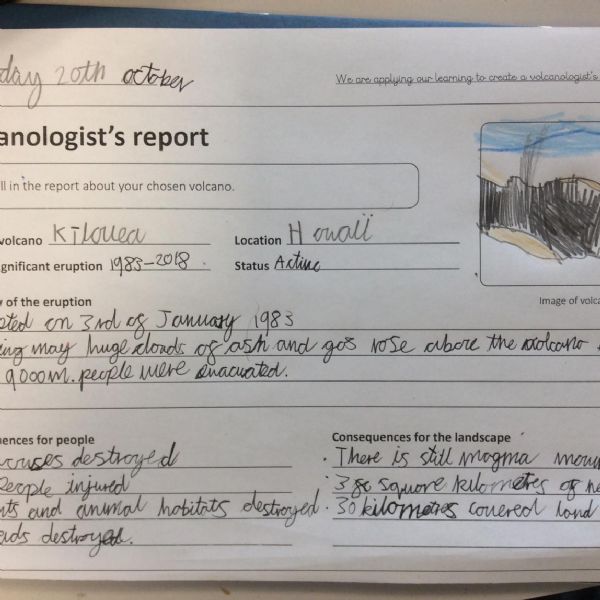 day 20th october
We are applying our learning to create a volcanologist's
anologist's report
ll in the report about your chosen volcano.
volcano Kilouea Location Howaii
gnificant eruption 1983-2018. Status Active
Image of volca
y of the eruption
pted on 3rd of January 1983
ing may huge clouds of ash and gas rose above the volcano
9000m. people were evacuated.
uences for people
ouses destroyed
People injured
nts and animal habitats destroyed.
ads destroyed.
Consequences for the landscape
. There is still magma
. 380 square kilometres of
. 30 kilometres covered land